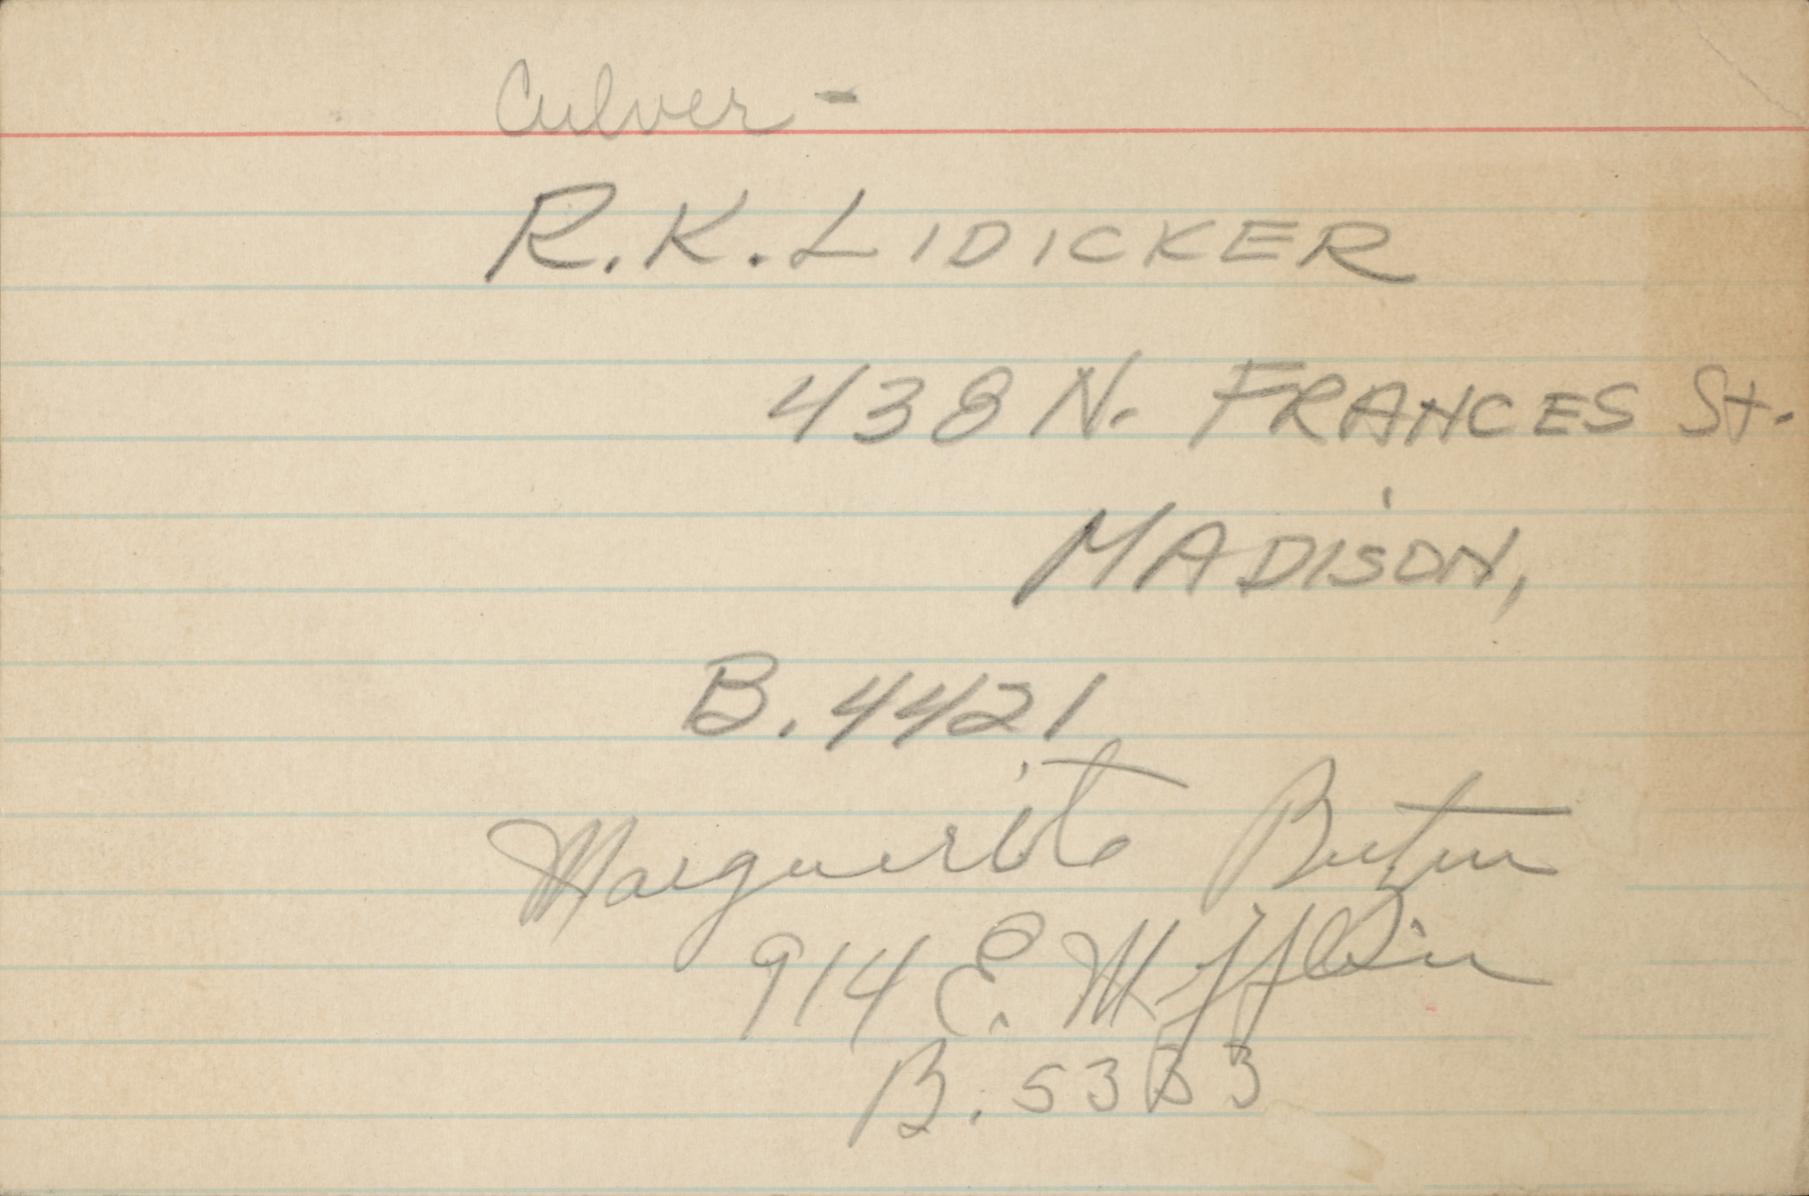 Culver -
R.K. LIDICKER
438 N. FRANCES St.
MADISON,
B. 4421
Marguerite
914 E. Mifflin
B. 5333